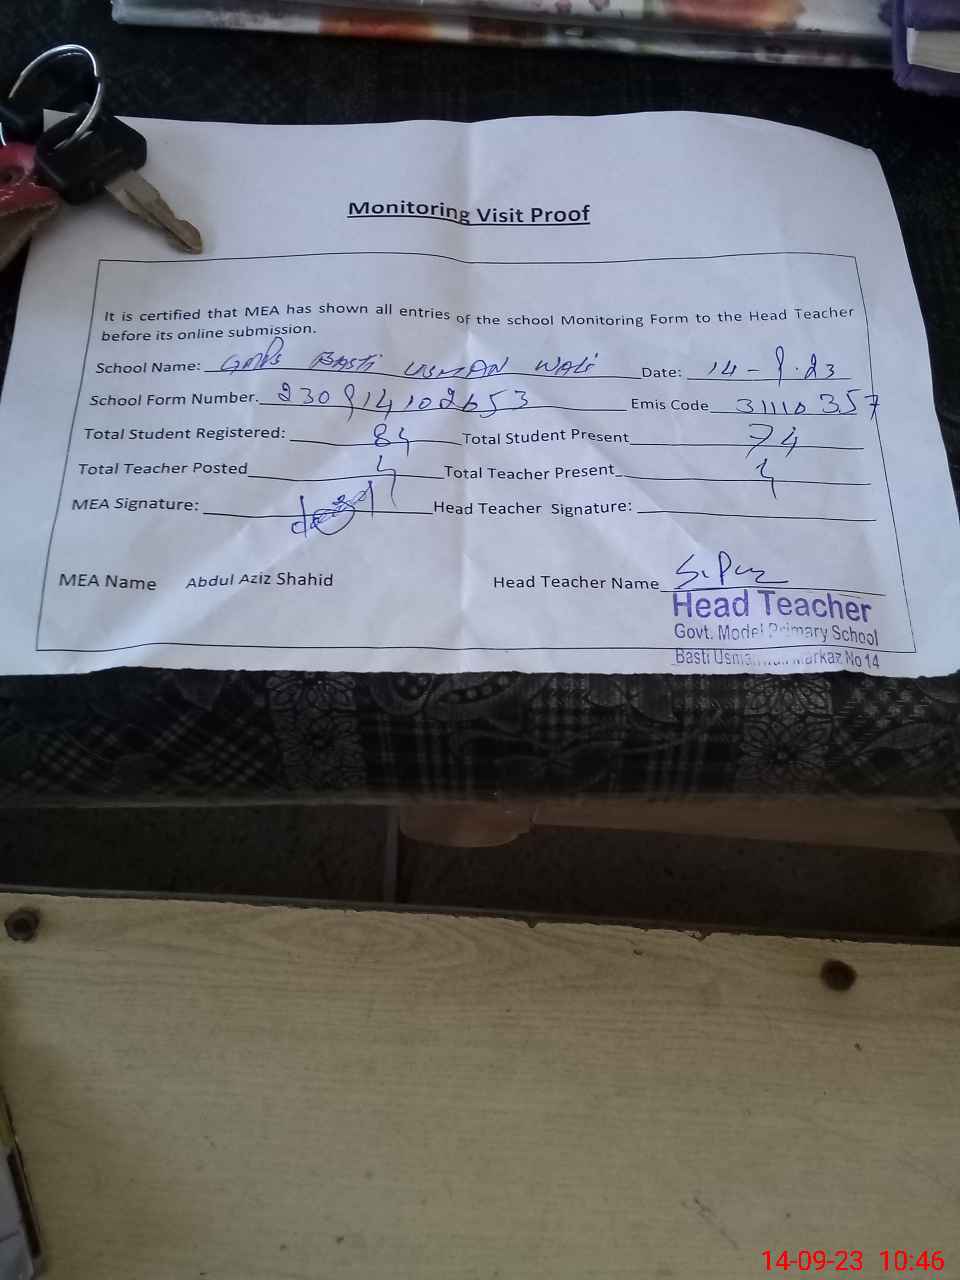 Monitoring Visit Proof
It is certified that MEA has shown all entries of the school Monitoring Form to the Head Teacher
before its online submission.
School Name: GMPS BASTI USMAN WALI Date: 14-9-23
School Form Number. 230914102653 Emis Code 31110357
Total Student Registered: 84 Total Student Present 74
Total Teacher Posted 4 Total Teacher Present 4
MEA Signature: Head Teacher Signature:
MEA Name Abdul Aziz Shahid Head Teacher Name
Head Teacher
Govt. Model Primary School
Basti Usman Markaz No 14
14-09-23 10:46